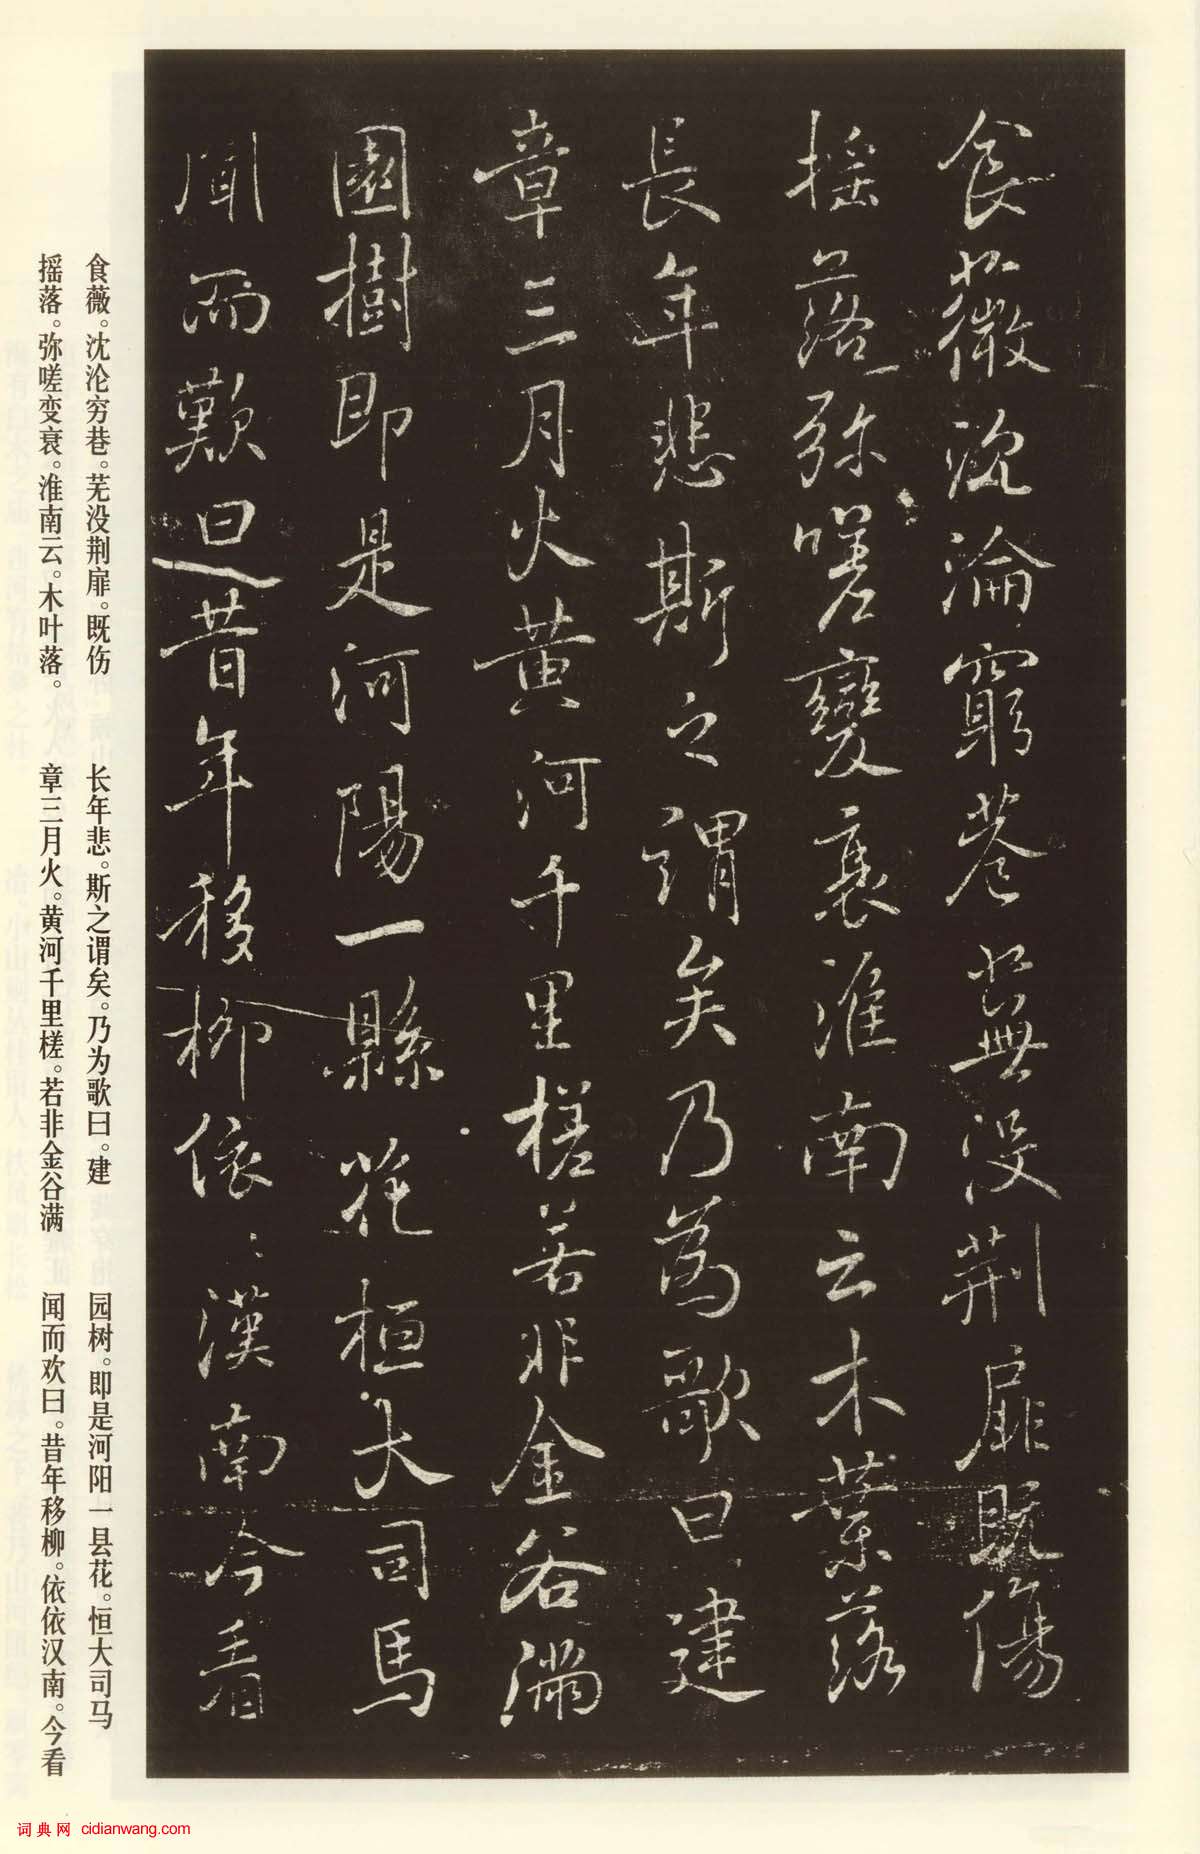 食薇沈淪窮巷蕪没荆扉既傷
摇落弥嗟變衰淮南云木葉落
長年悲斯之謂矣乃為歌曰建
章三月火黄河千里槎若非金谷滿
園樹即是河陽一縣花桓大司馬
聞而歎曰昔年移柳依〻漢南今看
食薇。沈沦穷巷。芜没荆扉。既伤
摇落。弥嗟变衰。淮南云。木叶落。
长年悲。斯之谓矣。乃为歌曰。建
章三月火。黄河千里槎。若非金谷满
园树。即是河阳一县花。恒大司马
闻而欢曰。昔年移柳。依依汉南。今看
词典网 cidianwang.com